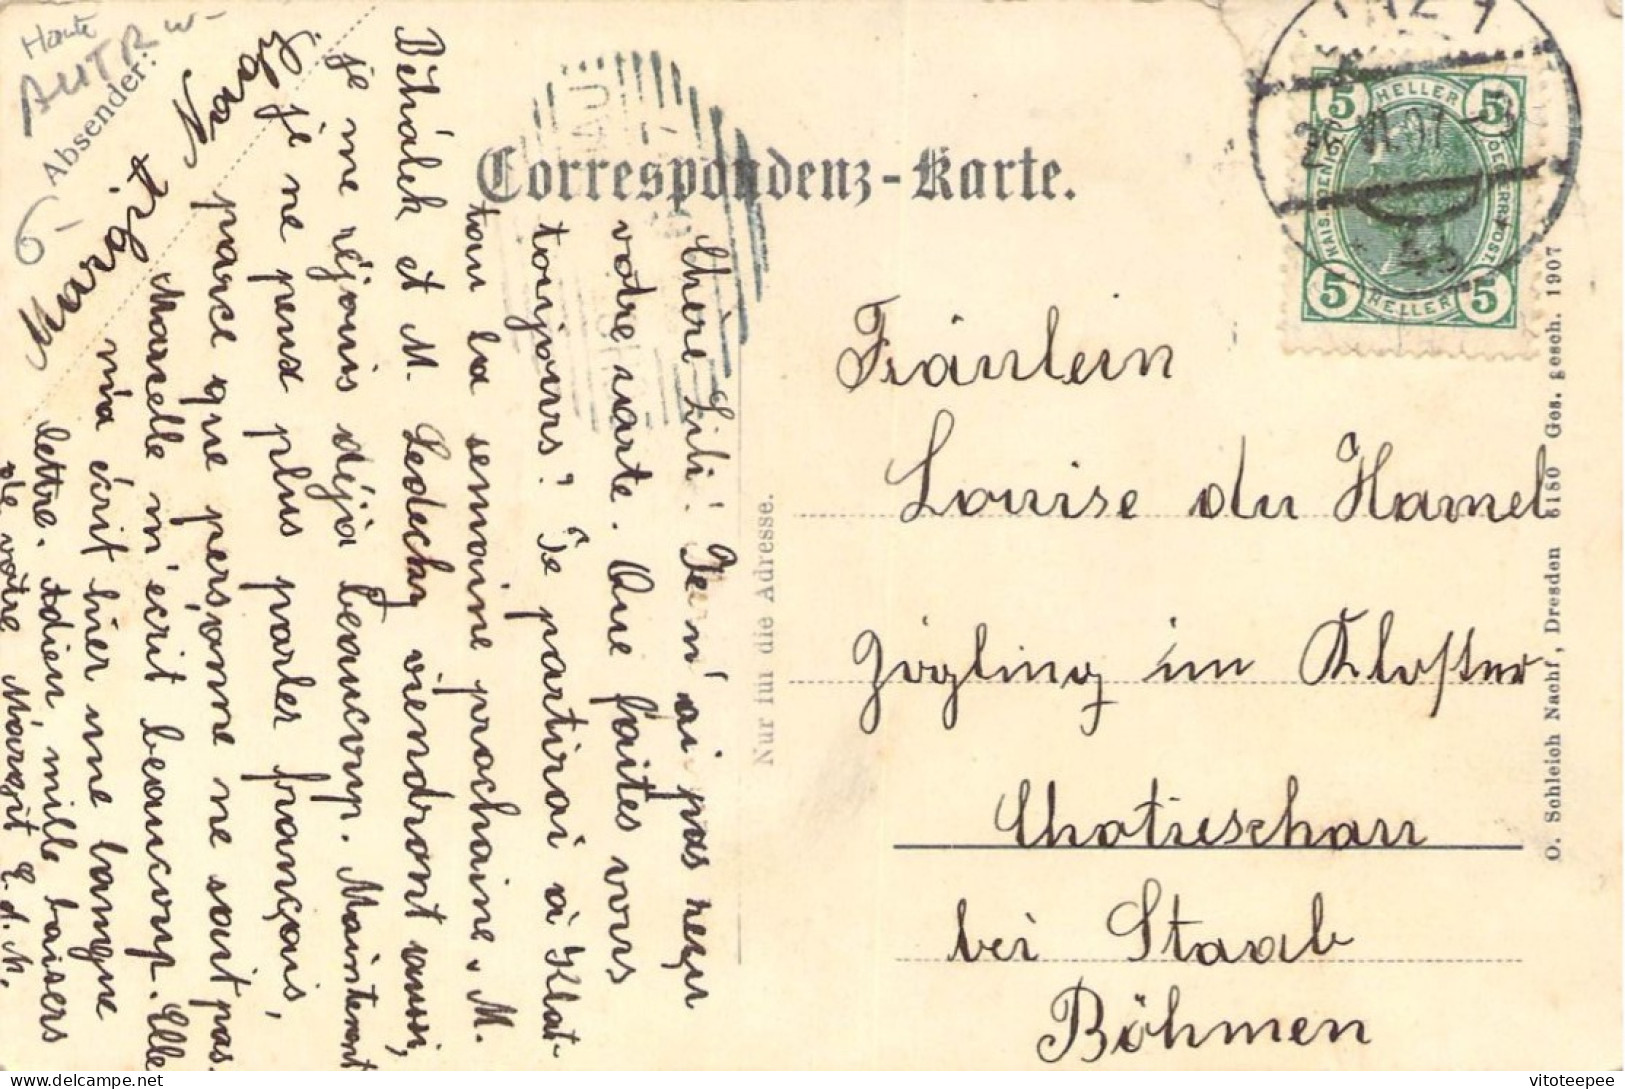 Haute
AUTR
6-
Absender:
Correspondenz-Karte.
Chère Lili! Je n'ai pas reçu
votre carte. Que faites vous
toujours? Je partirai à Klat-
tau la semaine prochaine. M.
Běhálek et M. Ledecky viendront aussi,
je me réjouis déjà beaucoup. Maintenant
je ne peux plus parler français,
parce que personne ne sait pas.
Marcelle m'écrit beaucoup. Elle
m'a écrit hier une longue
lettre. Adieu, mille baisers
de votre Margit E. d. N.
Nur für die Adresse.
5 HELLER 5
KAIS. KOENIGL. OESTERR. POST.
5 HELLER 5
26 VI 07
Fräulein
Louise du Hamel
Zögling im Kloster
Chotieschau
bei Staab
Böhmen
O. Schleich Nachf., Dresden 6180 Ges. gesch. 1907
vitoteepee